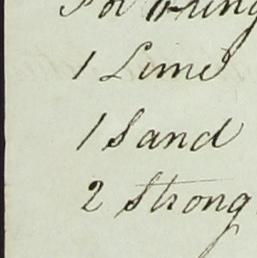 For
1 Lime
1 Sand
2 Strong